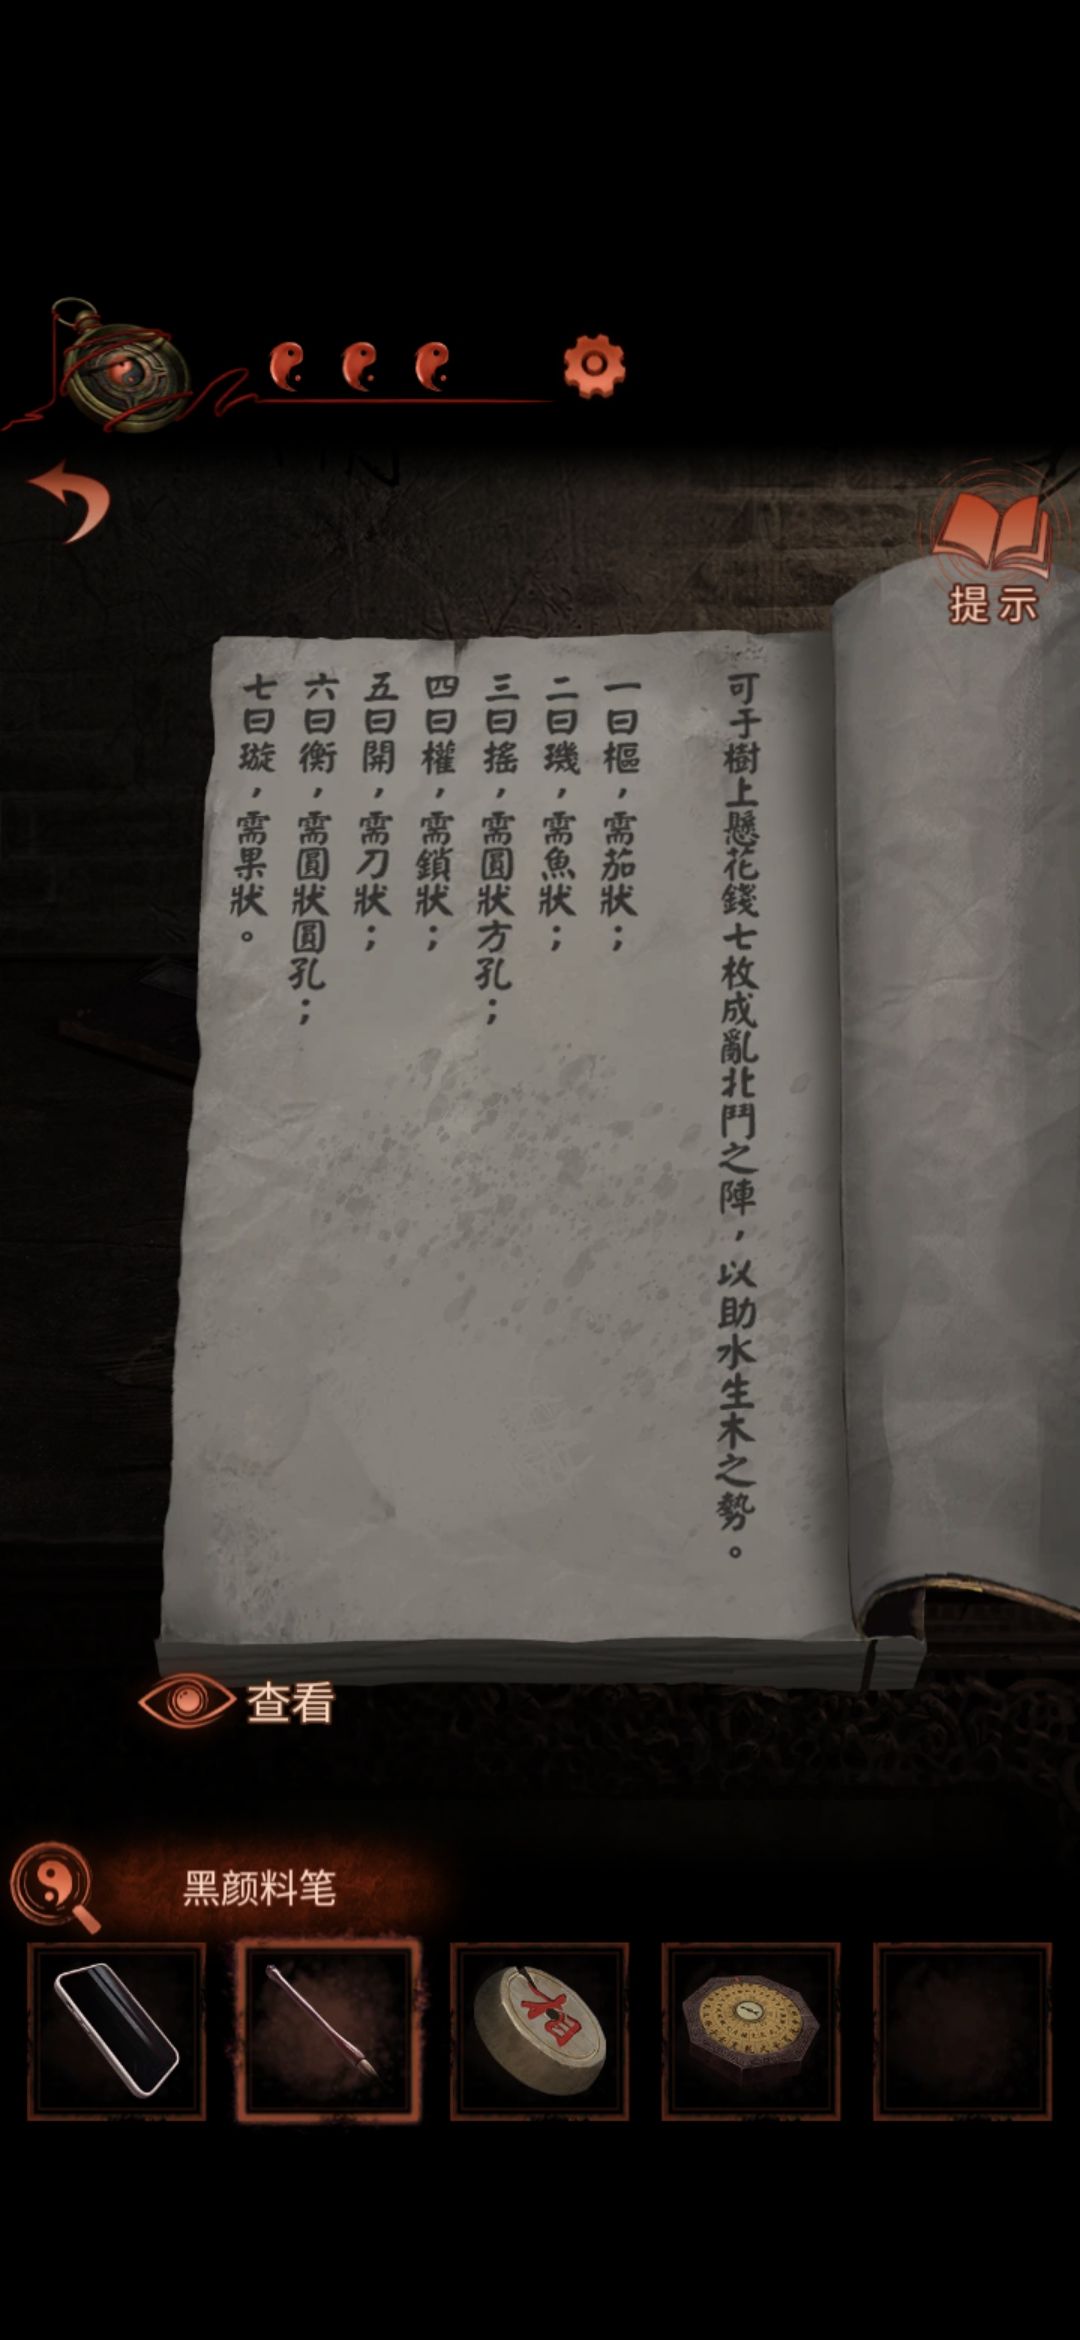 提示
可于樹上懸花錢七枚成亂北鬥之陣，以助水生木之勢。
一曰樞，需茄狀；
二曰璣，需魚狀；
三曰搖，需圓狀方孔；
四曰權，需鎖狀；
五曰開，需刀狀；
六曰衡，需圓狀圓孔；
七曰璇，需果狀。
查看
黑颜料笔